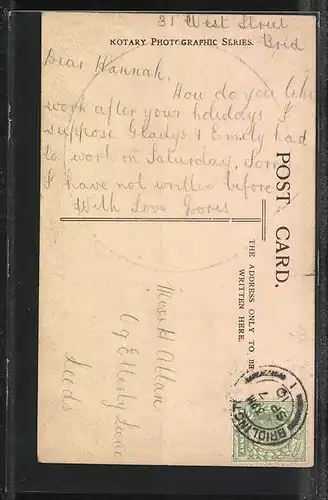 31 West Street
Brid
ROTARY PHOTOGRAPHIC SERIES.
Dear Hannah,
How do you like
work after your holidays I
suppose Gladys & Emily had
to work on Saturday, Sorry
I have not written before
With Love Doris
POST CARD.
THE ADDRESS ONLY TO BE
WRITTEN HERE.
Miss H Allan
Lane
Leeds
BRIDLINGT
SP 7
10
1